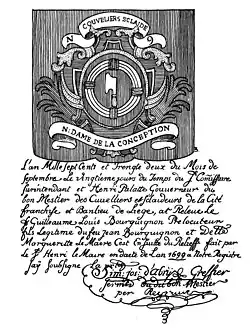 COUVELIERS SCLAIDE
N 9
N: DAME DE LA CONCEPTION
L'an Mille Sept Cents et Trengte deux du Mois de
Septembre Le Vingtiemejours du Temps du Sr Coniffure
Surintendant et Henri Palatte Gouverneur du
bon Mestier des Cuvelliers et sclaideurs de la Cité
Franchise et Banlieu de Liege, at Releve Le
Sr Guillaume Louis Bourguignon Prelocuteur
fils Legitime du feu jean Bourguignon et Delle
Marguerite Le Maire C'est Ensuitte du Relieff fait par
Le Sr Henri Le Maire en datte de l'an 1699 a Notre Registre
Greffier
du dit bon Mestier
par